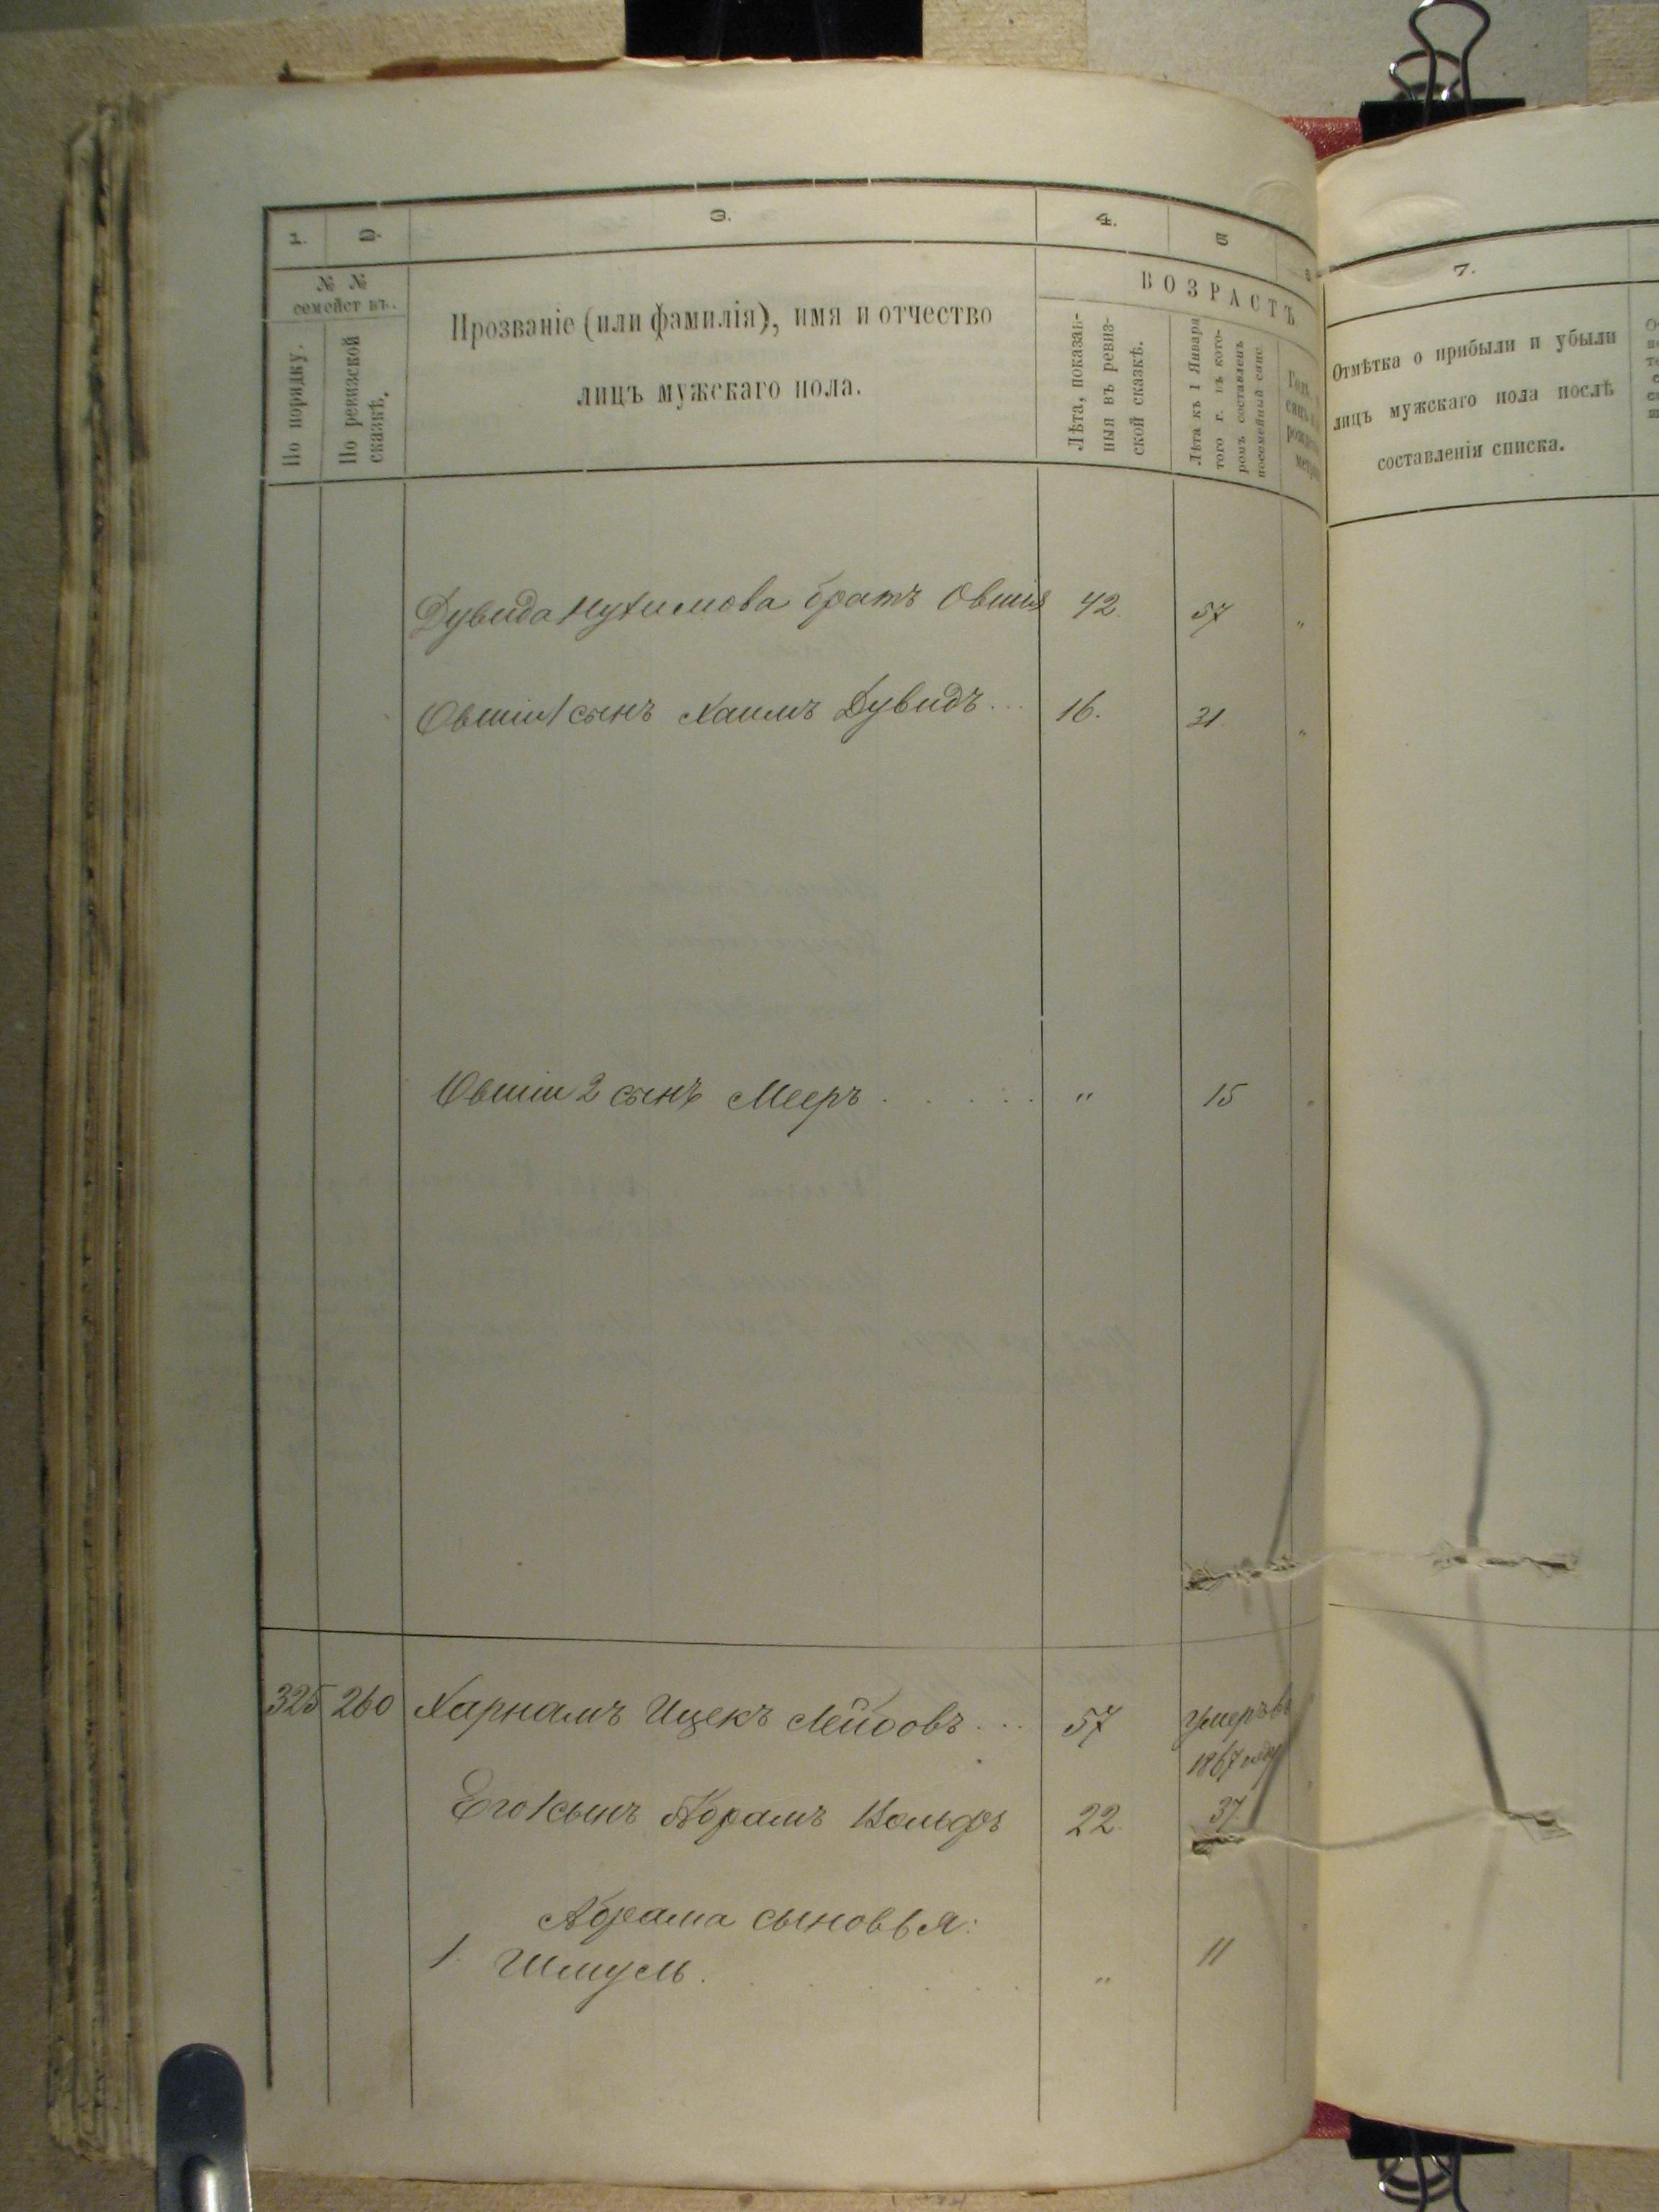 1. 2. 3. 4. 5 6
№ № семействъ.
По порядку.
По ревизской сказкѣ.
Прозваніе (или фамилія), имя и отчество
лицъ мужскаго пола.
ВОЗРАСТЪ
Лѣта, показан-
ныя въ ревиз-
ской сказкѣ.
Лѣта къ 1 Января
того г. въ кото-
ромъ составленъ
посемейный спис.
7.
Отмѣтка о прибыли и убыли
лицъ мужскаго пола послѣ
составленія списка.
Дувида Нухимова братъ Овшія 42. 57 "
Овшіи 1 сынъ Хаимъ Дувидъ... 16. 31. "
Овшіи 2 сынъ Мееръ . . . . . " 15 "
325 260 Харнамъ Ицекъ Лейбовъ... 57 Умеръ въ
1867 году
Его 1 сынъ Абрамъ Вольфъ 22. 37.
Абрама сыновья:
1. Шмуль. . . . . . " 11